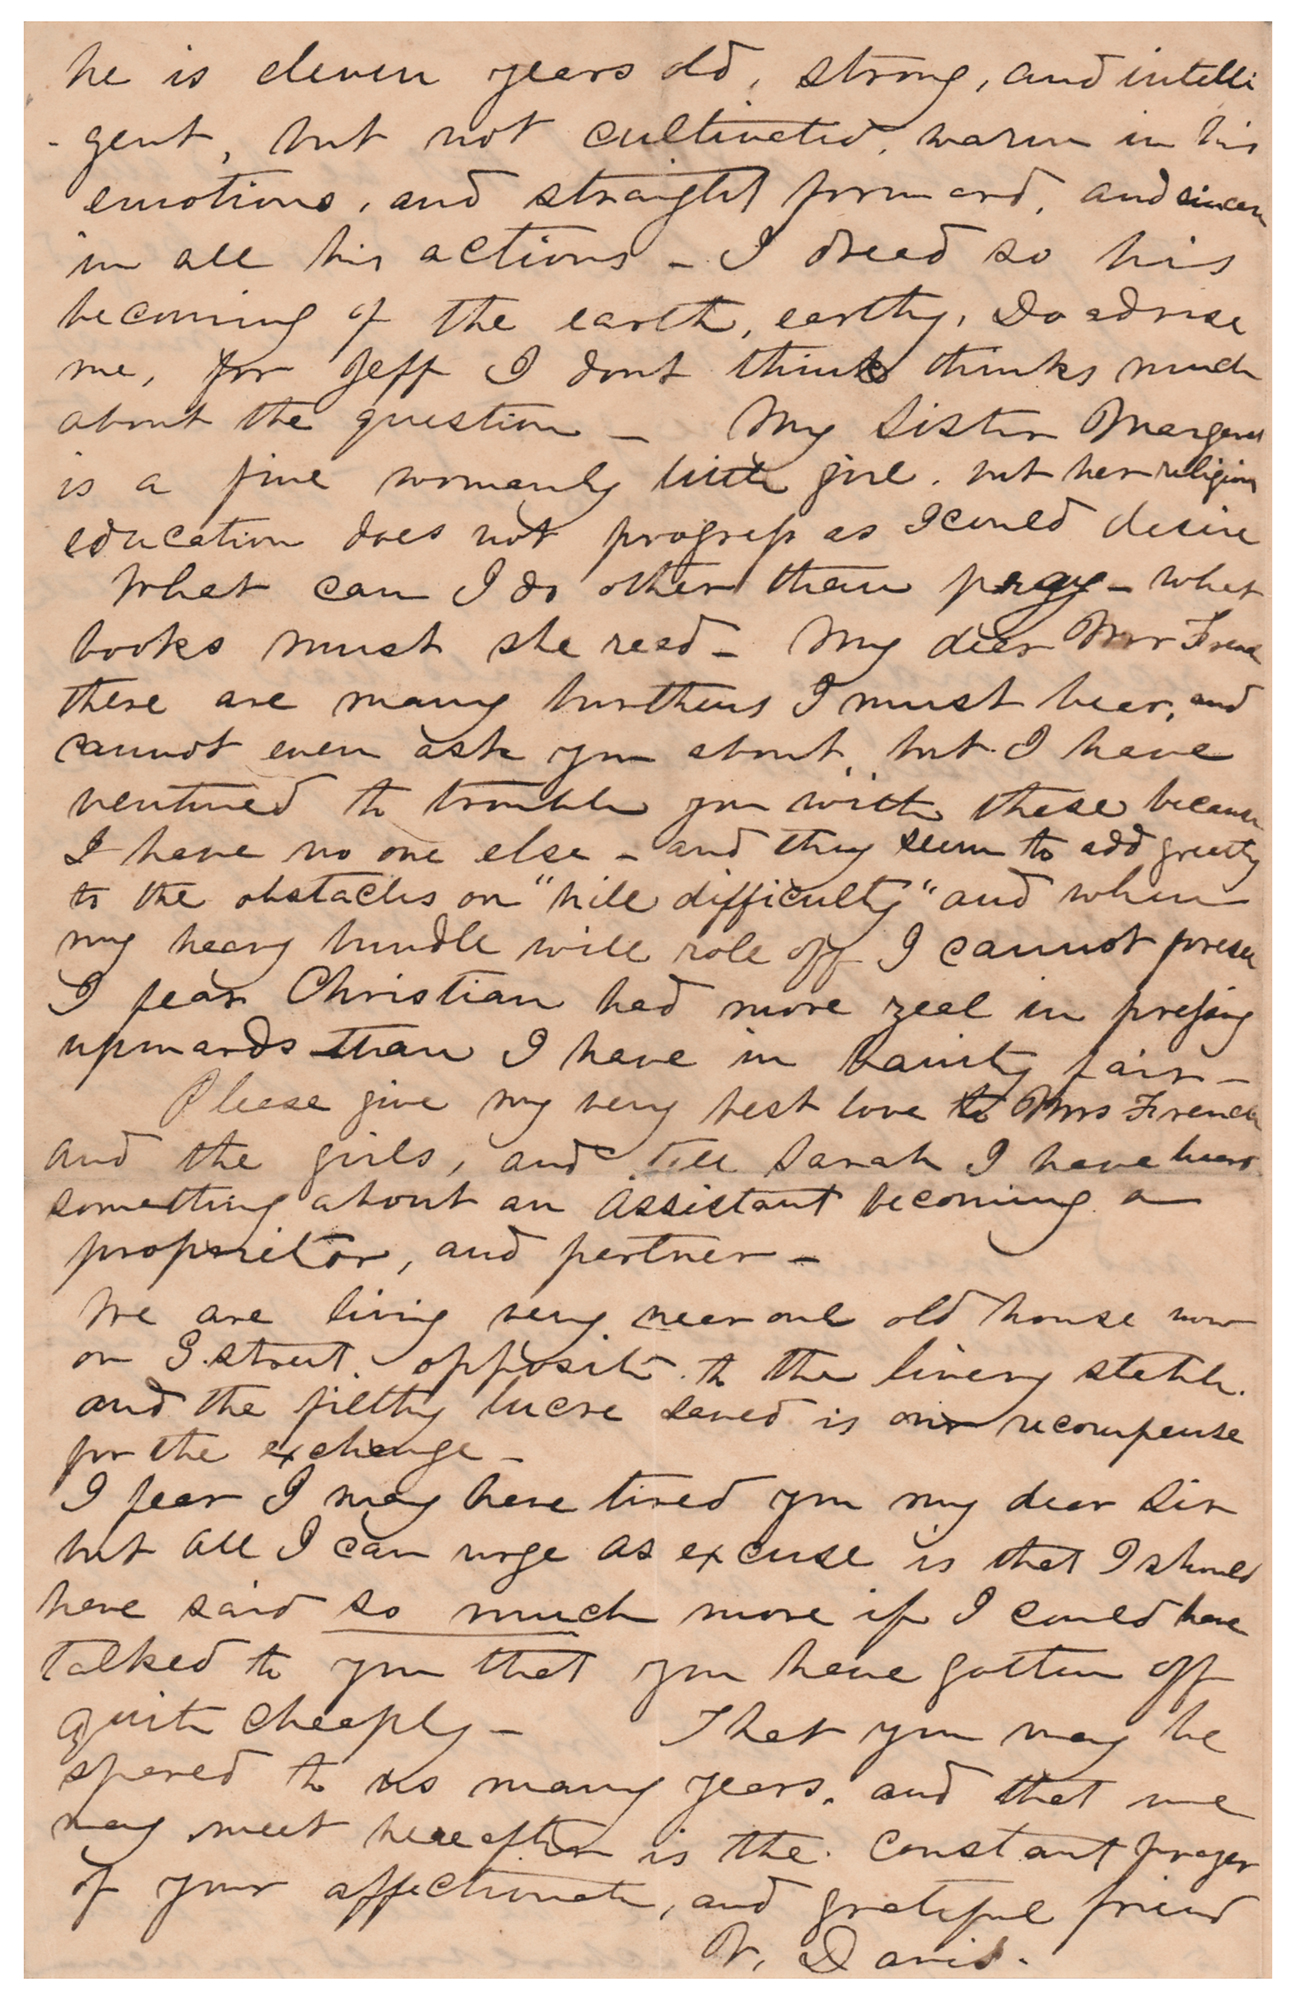 he is eleven years old, strong, and intelli
- gent, but not cultivated, warm in his
emotions, and straight forward, and sincere
in all his actions - I dread so his
becoming of the earth, earthy, Do advise
me, for Jeff I dont think thinks much
about the question - My Sister Margaret
is a fine womanly little girl. but her religious
education does not progress as I could desire
What can I do other than pray - what
books must she read - My dear Mr French
there are many burthens I must bear, and
cannot even ask you about, but I have
ventured to trouble you with these because
I have no one else - and they seem to add greatly
to the obstacles on "hill difficulty" and when
my heavy bundle will role off I cannot foresee
I fear Christian had more zeal in pressing
upwards than I have in Vanity fair -
Please give my very best love to Mrs French
and the girls, and tell Sarah I have heard
something about an assistant becoming a
proprietor, and partner -
We are living very near our old house now
on G. street. opposite to the livery stable.
and the filthy lucre saved is our recompense
for the exchange -
I fear I may have tired you my dear Sir
but all I can urge as excuse is that I should
have said so much more if I could have
talked to you that you have gotten off
quite cheaply - That you may be
spared to us many years, and that we
may meet hereafter is the constant prayer
of your affectionate, and grateful friend
V. Davis.